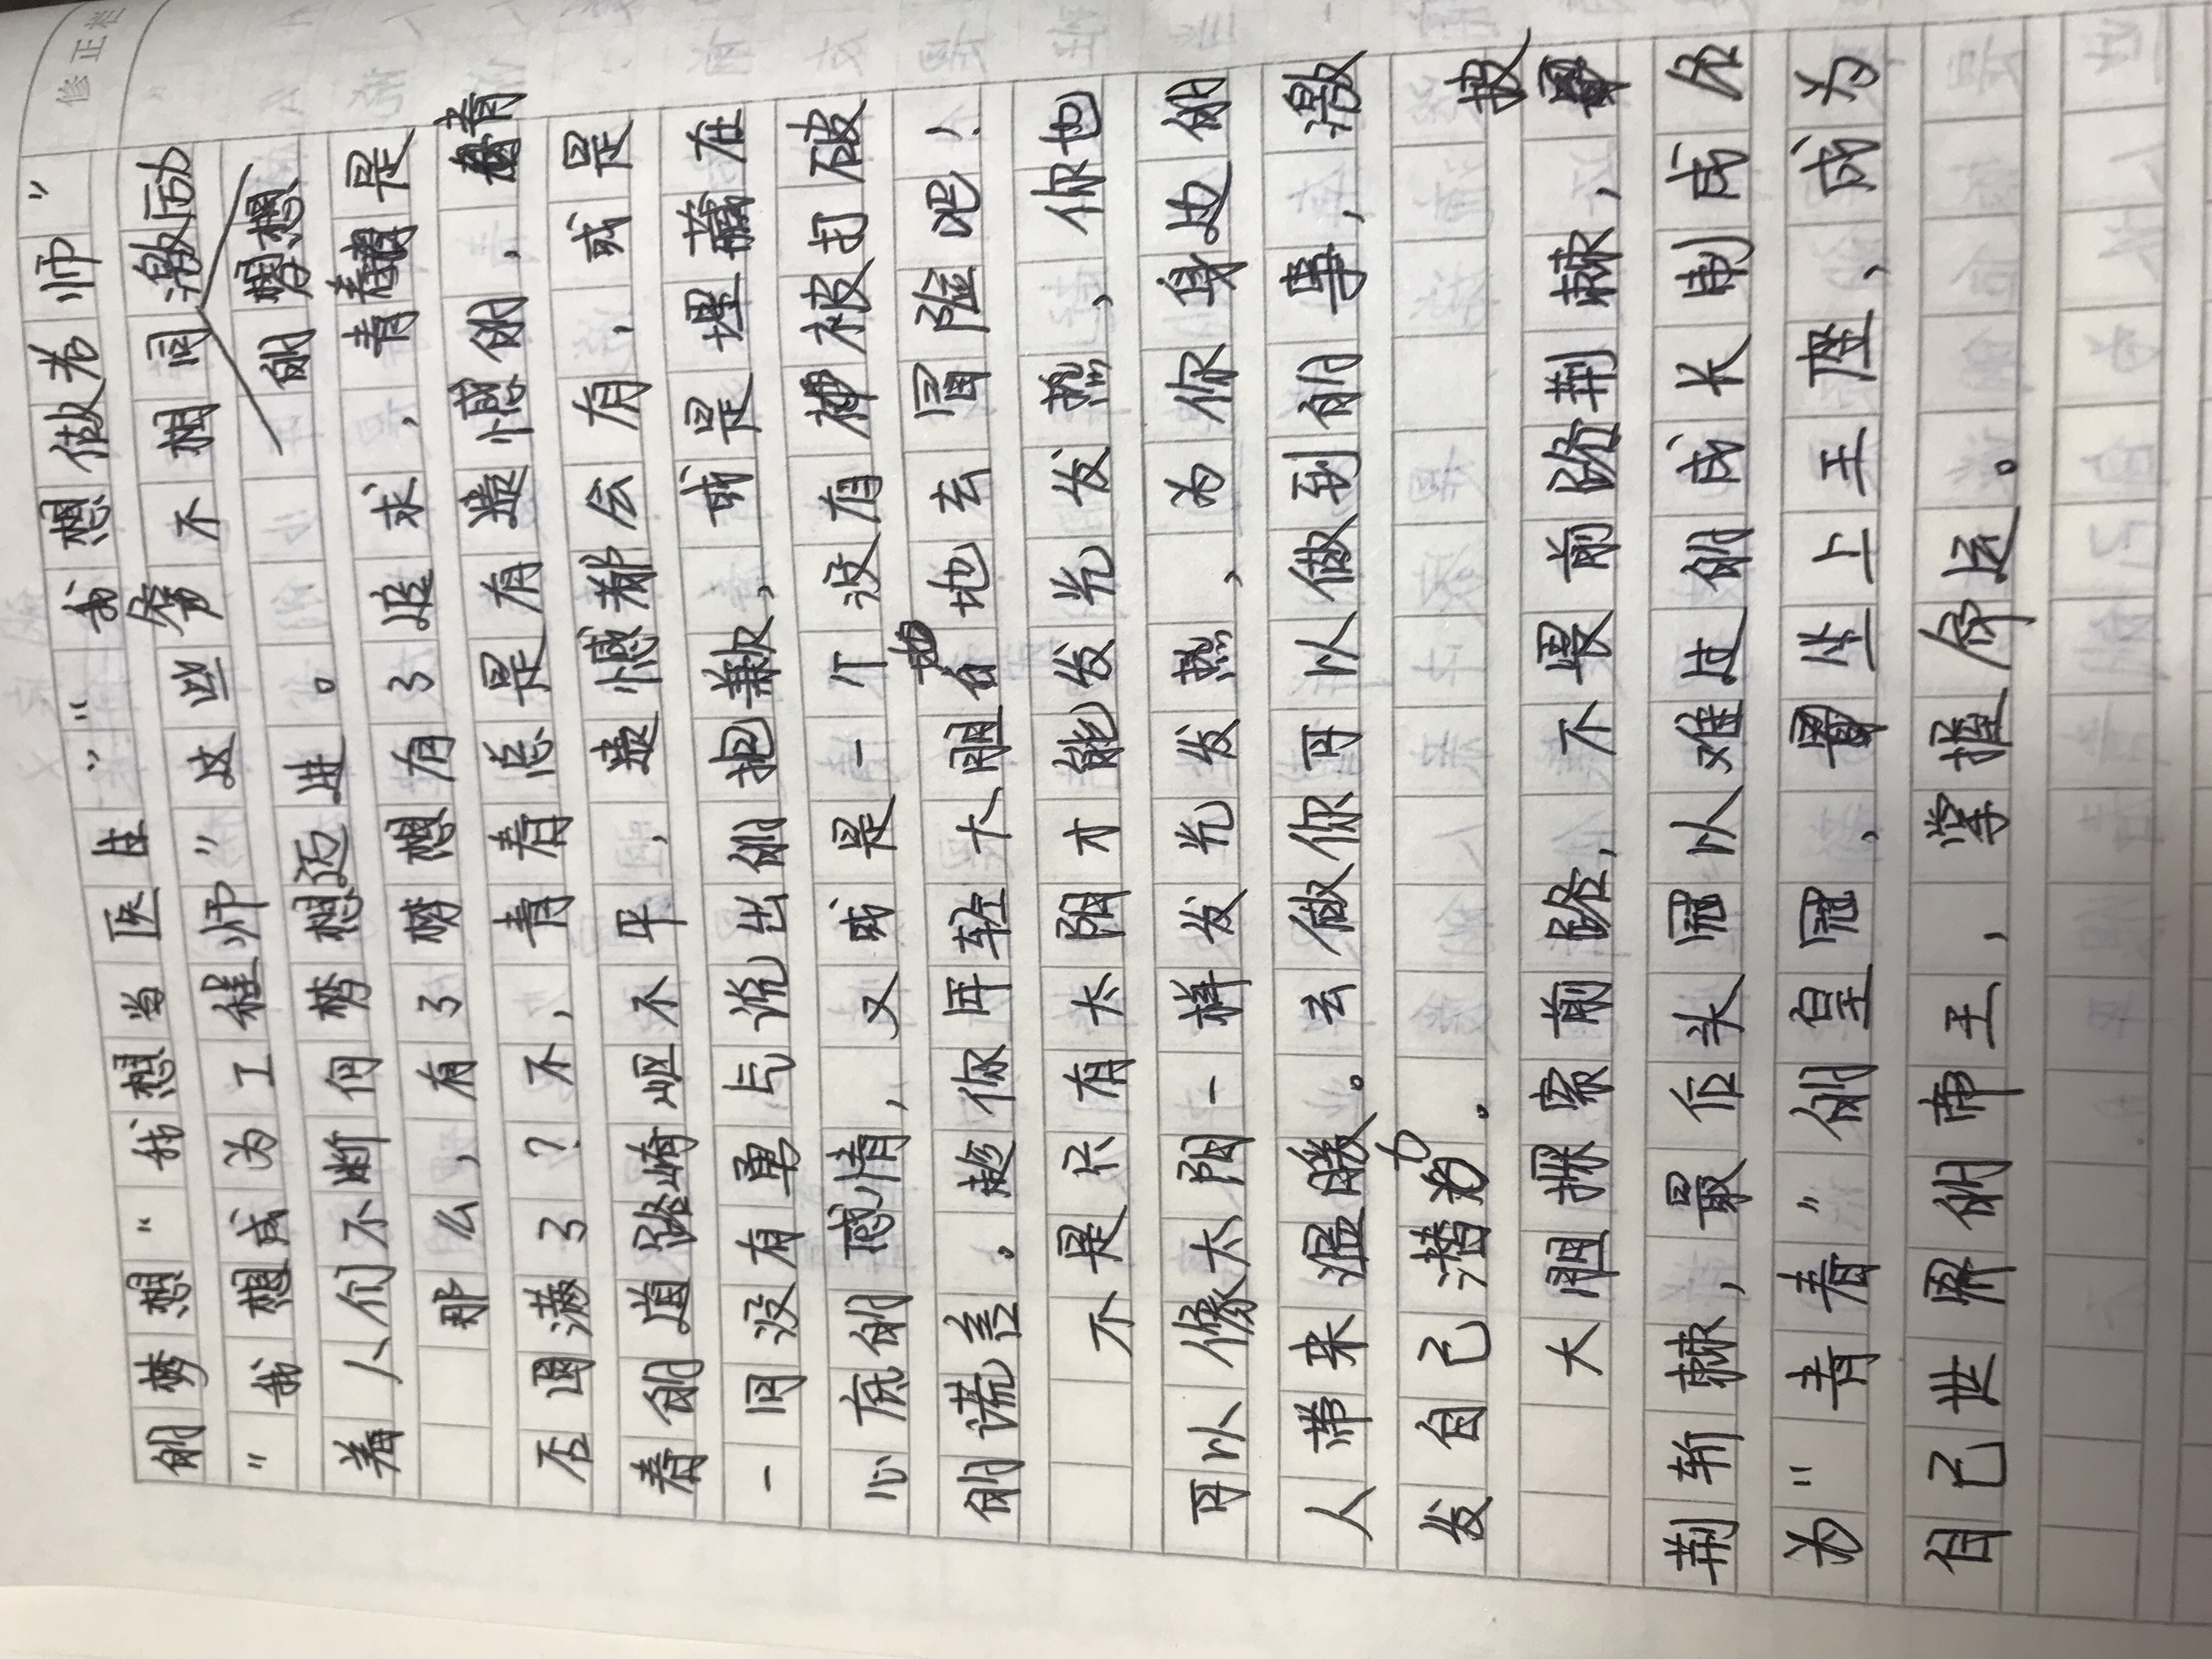 修正栏
的梦想"我想当医生""我想做老师"
"我想成为工程师"这些等不相同的梦想激励
着人们不断向梦想迈进。
那么,有了梦想有了追求,青春是
否圆满了?不,青春总是有遗憾的,青
春的道路崎岖不平,遗憾都会有,或是
一同没有勇气说出的抱歉,或是埋藏在
心底的感情,又或是一个没有被打破
的谎言。趁你年轻大胆地去冒险吧!
不是只有太阳才能发光发热,你也
可以像太阳一样发光发热,为你身边的
人带来温暖。去做你可以做到的事,激
发自己潜力。
大胆探索前路,不畏前路荆棘,披
荆斩棘,最后头冠以难过的成长制成名
为"青春"的皇冠,坐上王座,成为
自己世界的帝王,掌握命运。